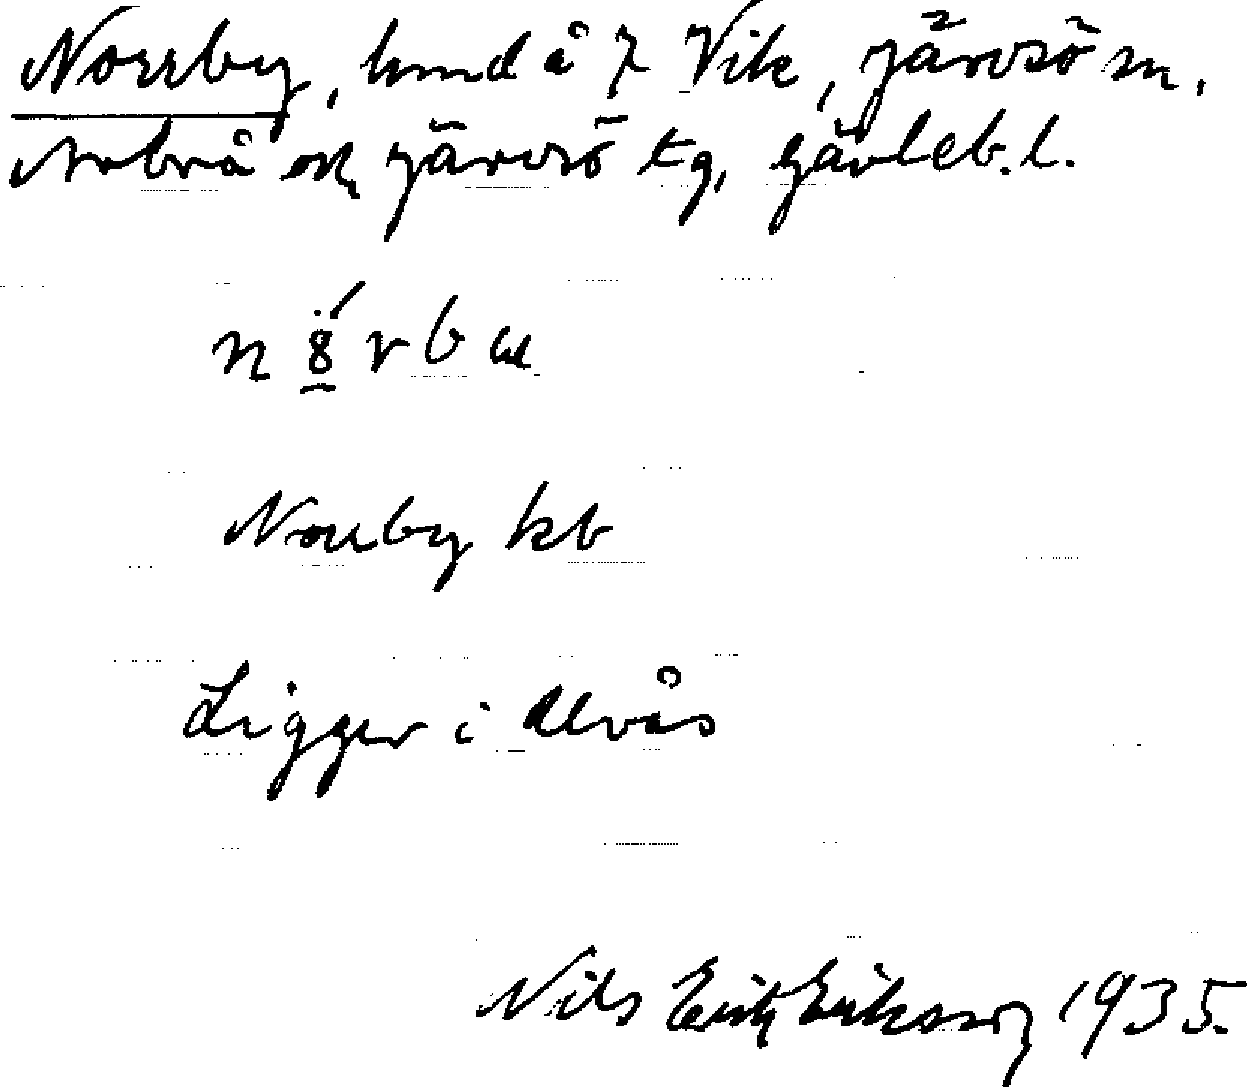 Norrby, hmd å 7 Vik, Järvsö sn.
Arbrå och Järvsö tg, Gävleb. l.
Norrby kb
Ligger i Alvås
Nils Erik Eriksson 1935.